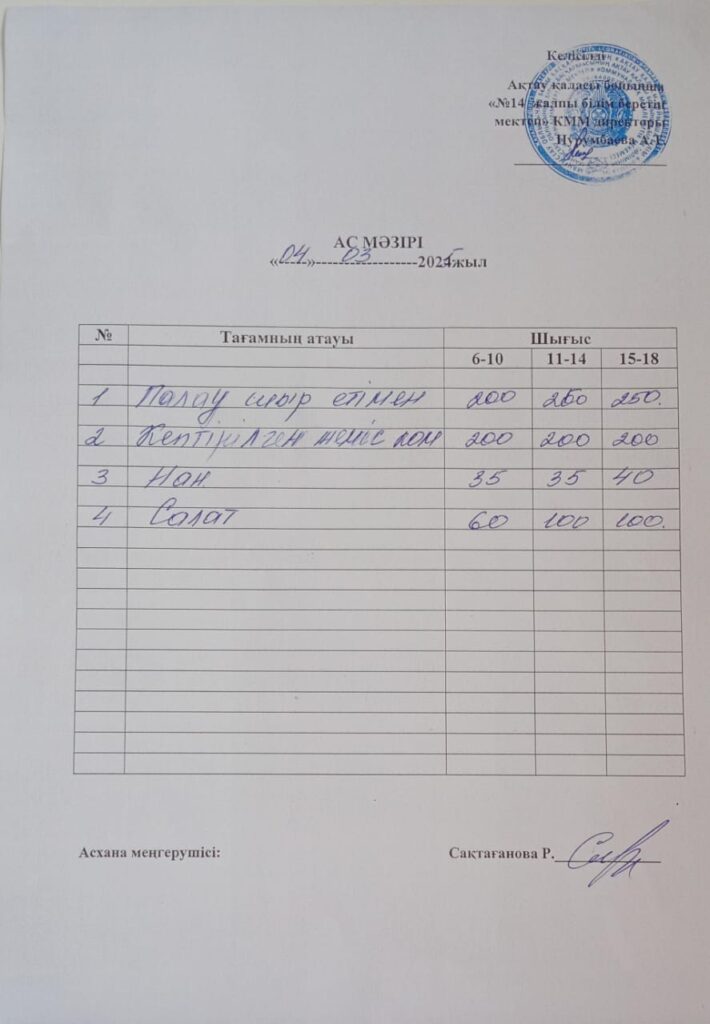 Келісілді
Ақтау қаласы бойынша
«№14 жалпы білім беретін
мектеп» КММ директоры
Нурумбаева А.Т.
АС МӘЗІРІ
«04»-----03-------------2025жыл
№ Тағамның атауы Шығыс
6-10 11-14 15-18
1 Палау сиыр етімен 200 250 250.
2 Кептірілген жеміс ком 200 200 200
3 Нан 35 35 40
4 Салат 60 100 100.
Асхана меңгерушісі: Сақтағанова Р.